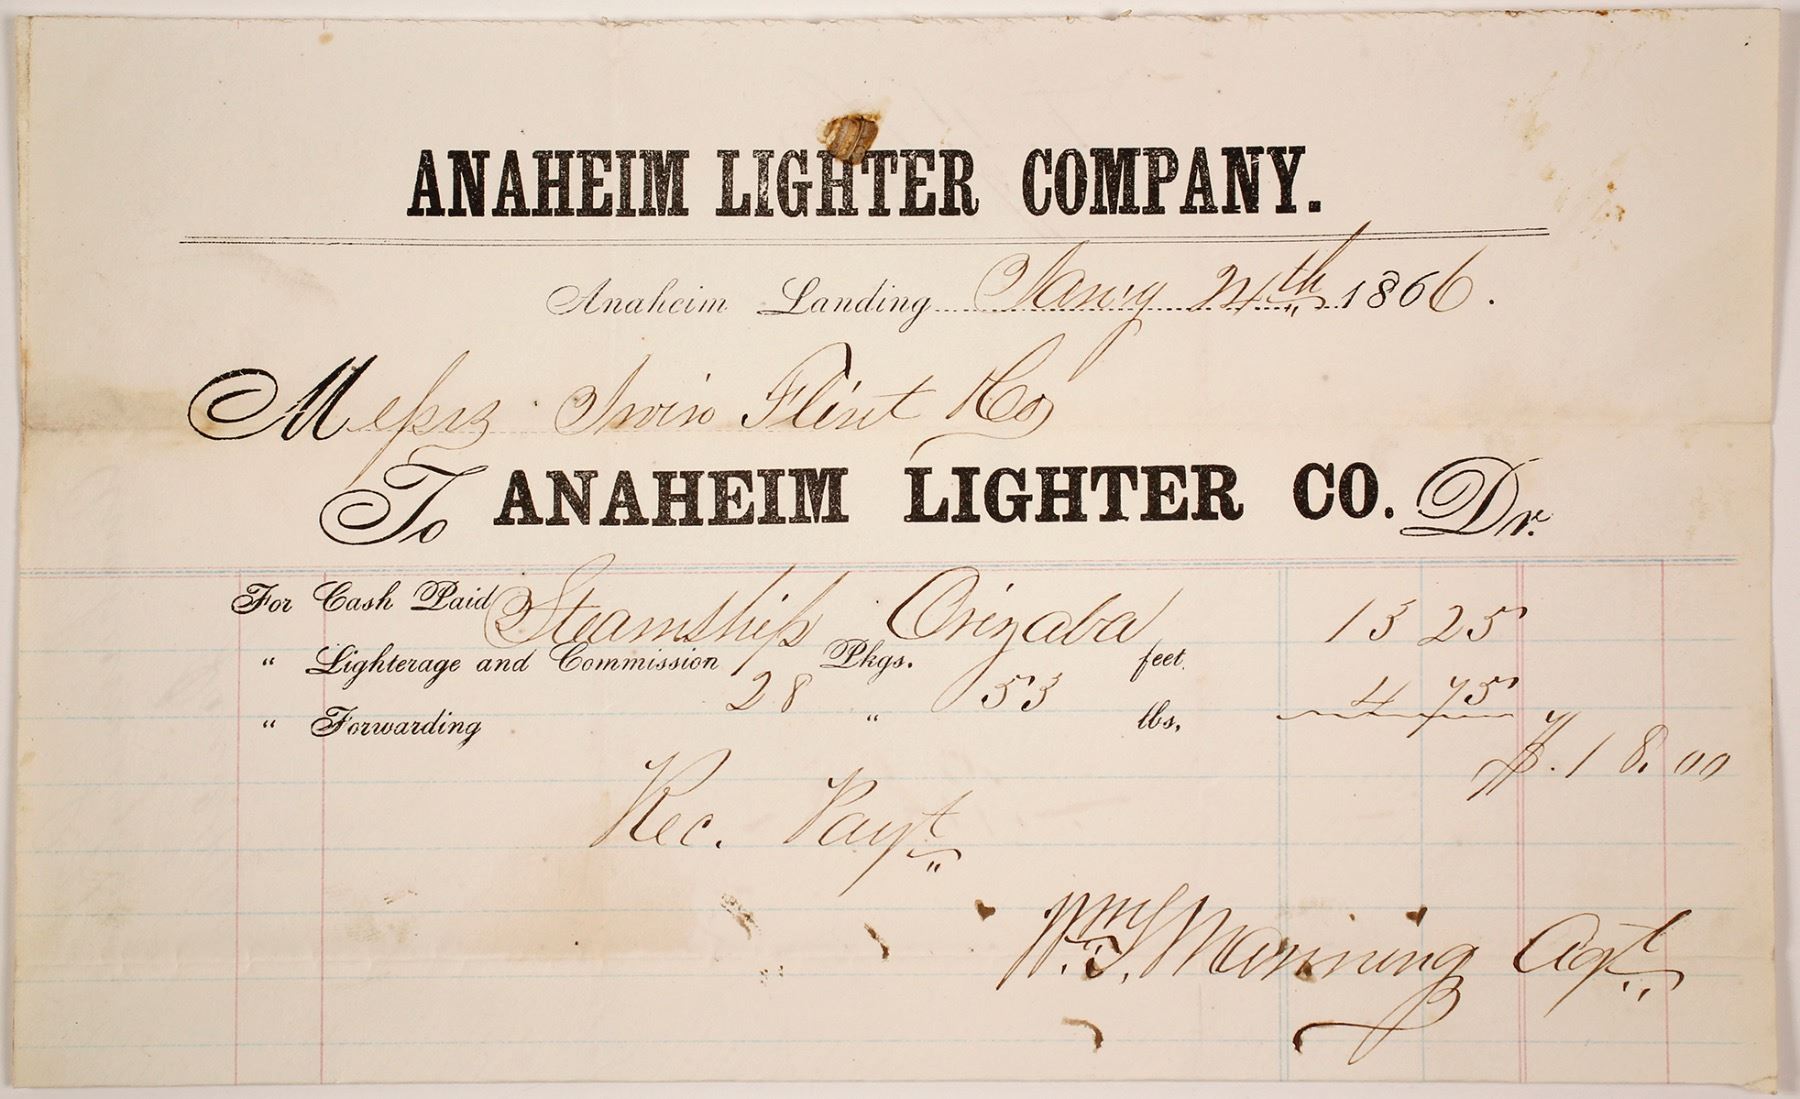 ANAHEIM LIGHTER COMPANY.
Anaheim Landing Jany 24th 1866.
Messrs Irvin Flint & Co
To ANAHEIM LIGHTER CO. Dr.
For Cash Paid Steamship Orizaba 13 25
" Lighterage and Commission 28 Pkgs. 53 feet. 4 75
" Forwarding " lbs. $.18.00
Rec. Payt
Wm. Manning Agt